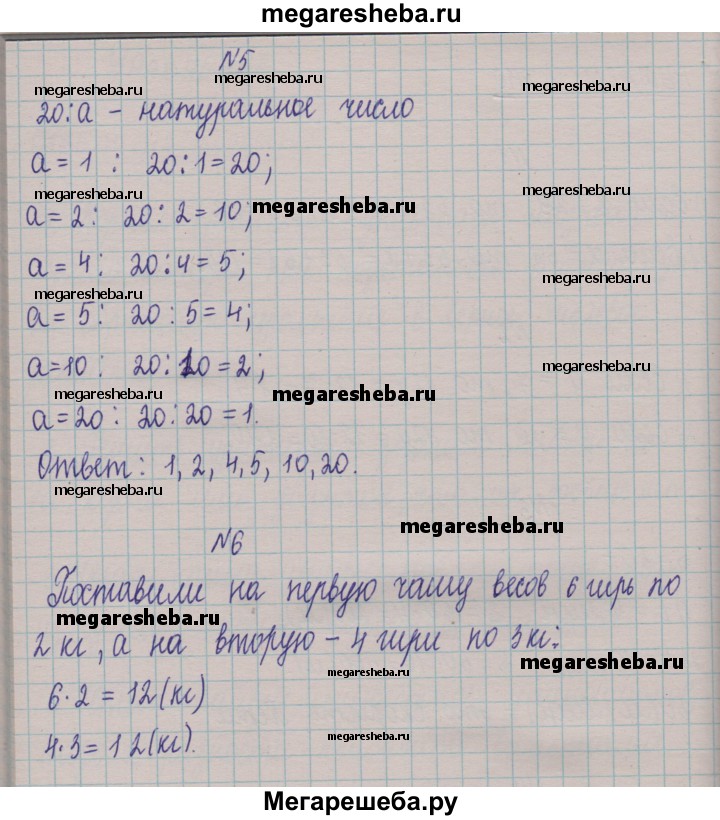 megaresheba.ru
N5
megaresheba.ru
megaresheba.ru
megaresheba.ru
20:a - натуральное число
a = 1 : 20:1=20;
megaresheba.ru
megaresheba.ru
a = 2: 20: 2=10;
megaresheba.ru
a = 4: 20:4= 5;
megaresheba.ru
megaresheba.ru
a = 5: 20 : 5= 4;
a=10 : 20: 10 = 2;
megaresheba.ru
megaresheba.ru
megaresheba.ru
a=20 : 20:20 = 1.
Ответ: 1, 2, 4, 5, 10, 20.
megaresheba.ru
megaresheba.ru
N6
Поставили на первую чашу весов 6 гирь по
megaresheba.ru
2 кг, а на вторую – 4 гири по 3 кг:
megaresheba.ru
megaresheba.ru
6·2 = 12(кг)
megaresheba.ru
4·3= 12(кг).
Мегарешеба.ру